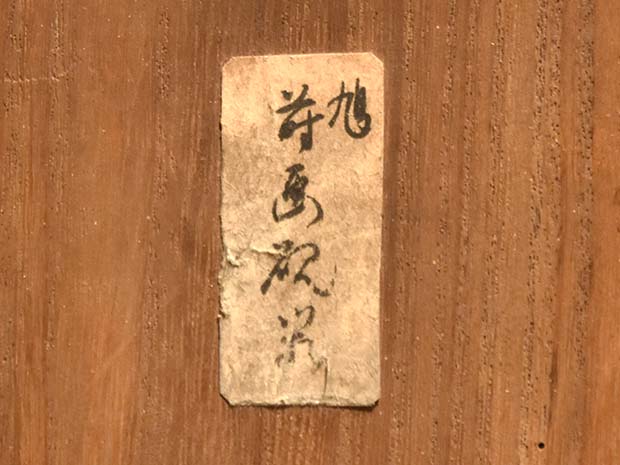 旭
蒔画硯箱